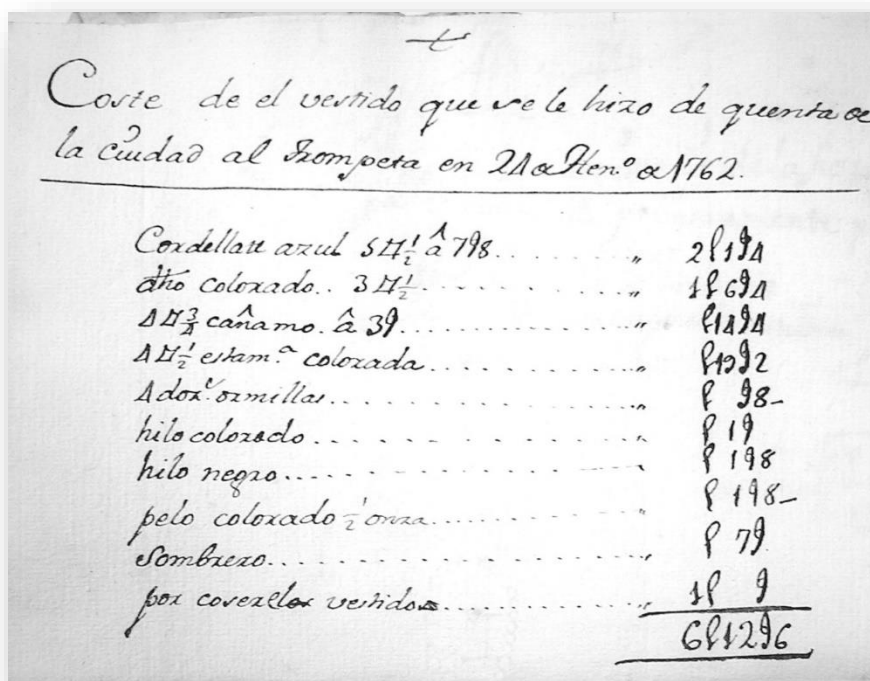 Coste de el vestido que se le hizo de quenta de
la ciudad al Trompeta en 24 de Hen.º de 1762.
Cordellate azul 5 ½ â 798 .. 2ℓ194
dho colorado .. 3 ½ .. 1ℓ694
4 ¾ cañamo. â 39 .. ℓ1494
4 ½ estam.ª colorada .. ℓ1392
4 doz.s ormillas .. ℓ 98-
hilo colorado .. ℓ 19
hilo negro .. ℓ 198
pelo colorado ½ onza .. ℓ 198-
Sombrero .. ℓ 79
por coser los vestidos .. 1ℓ 9
6ℓ1296